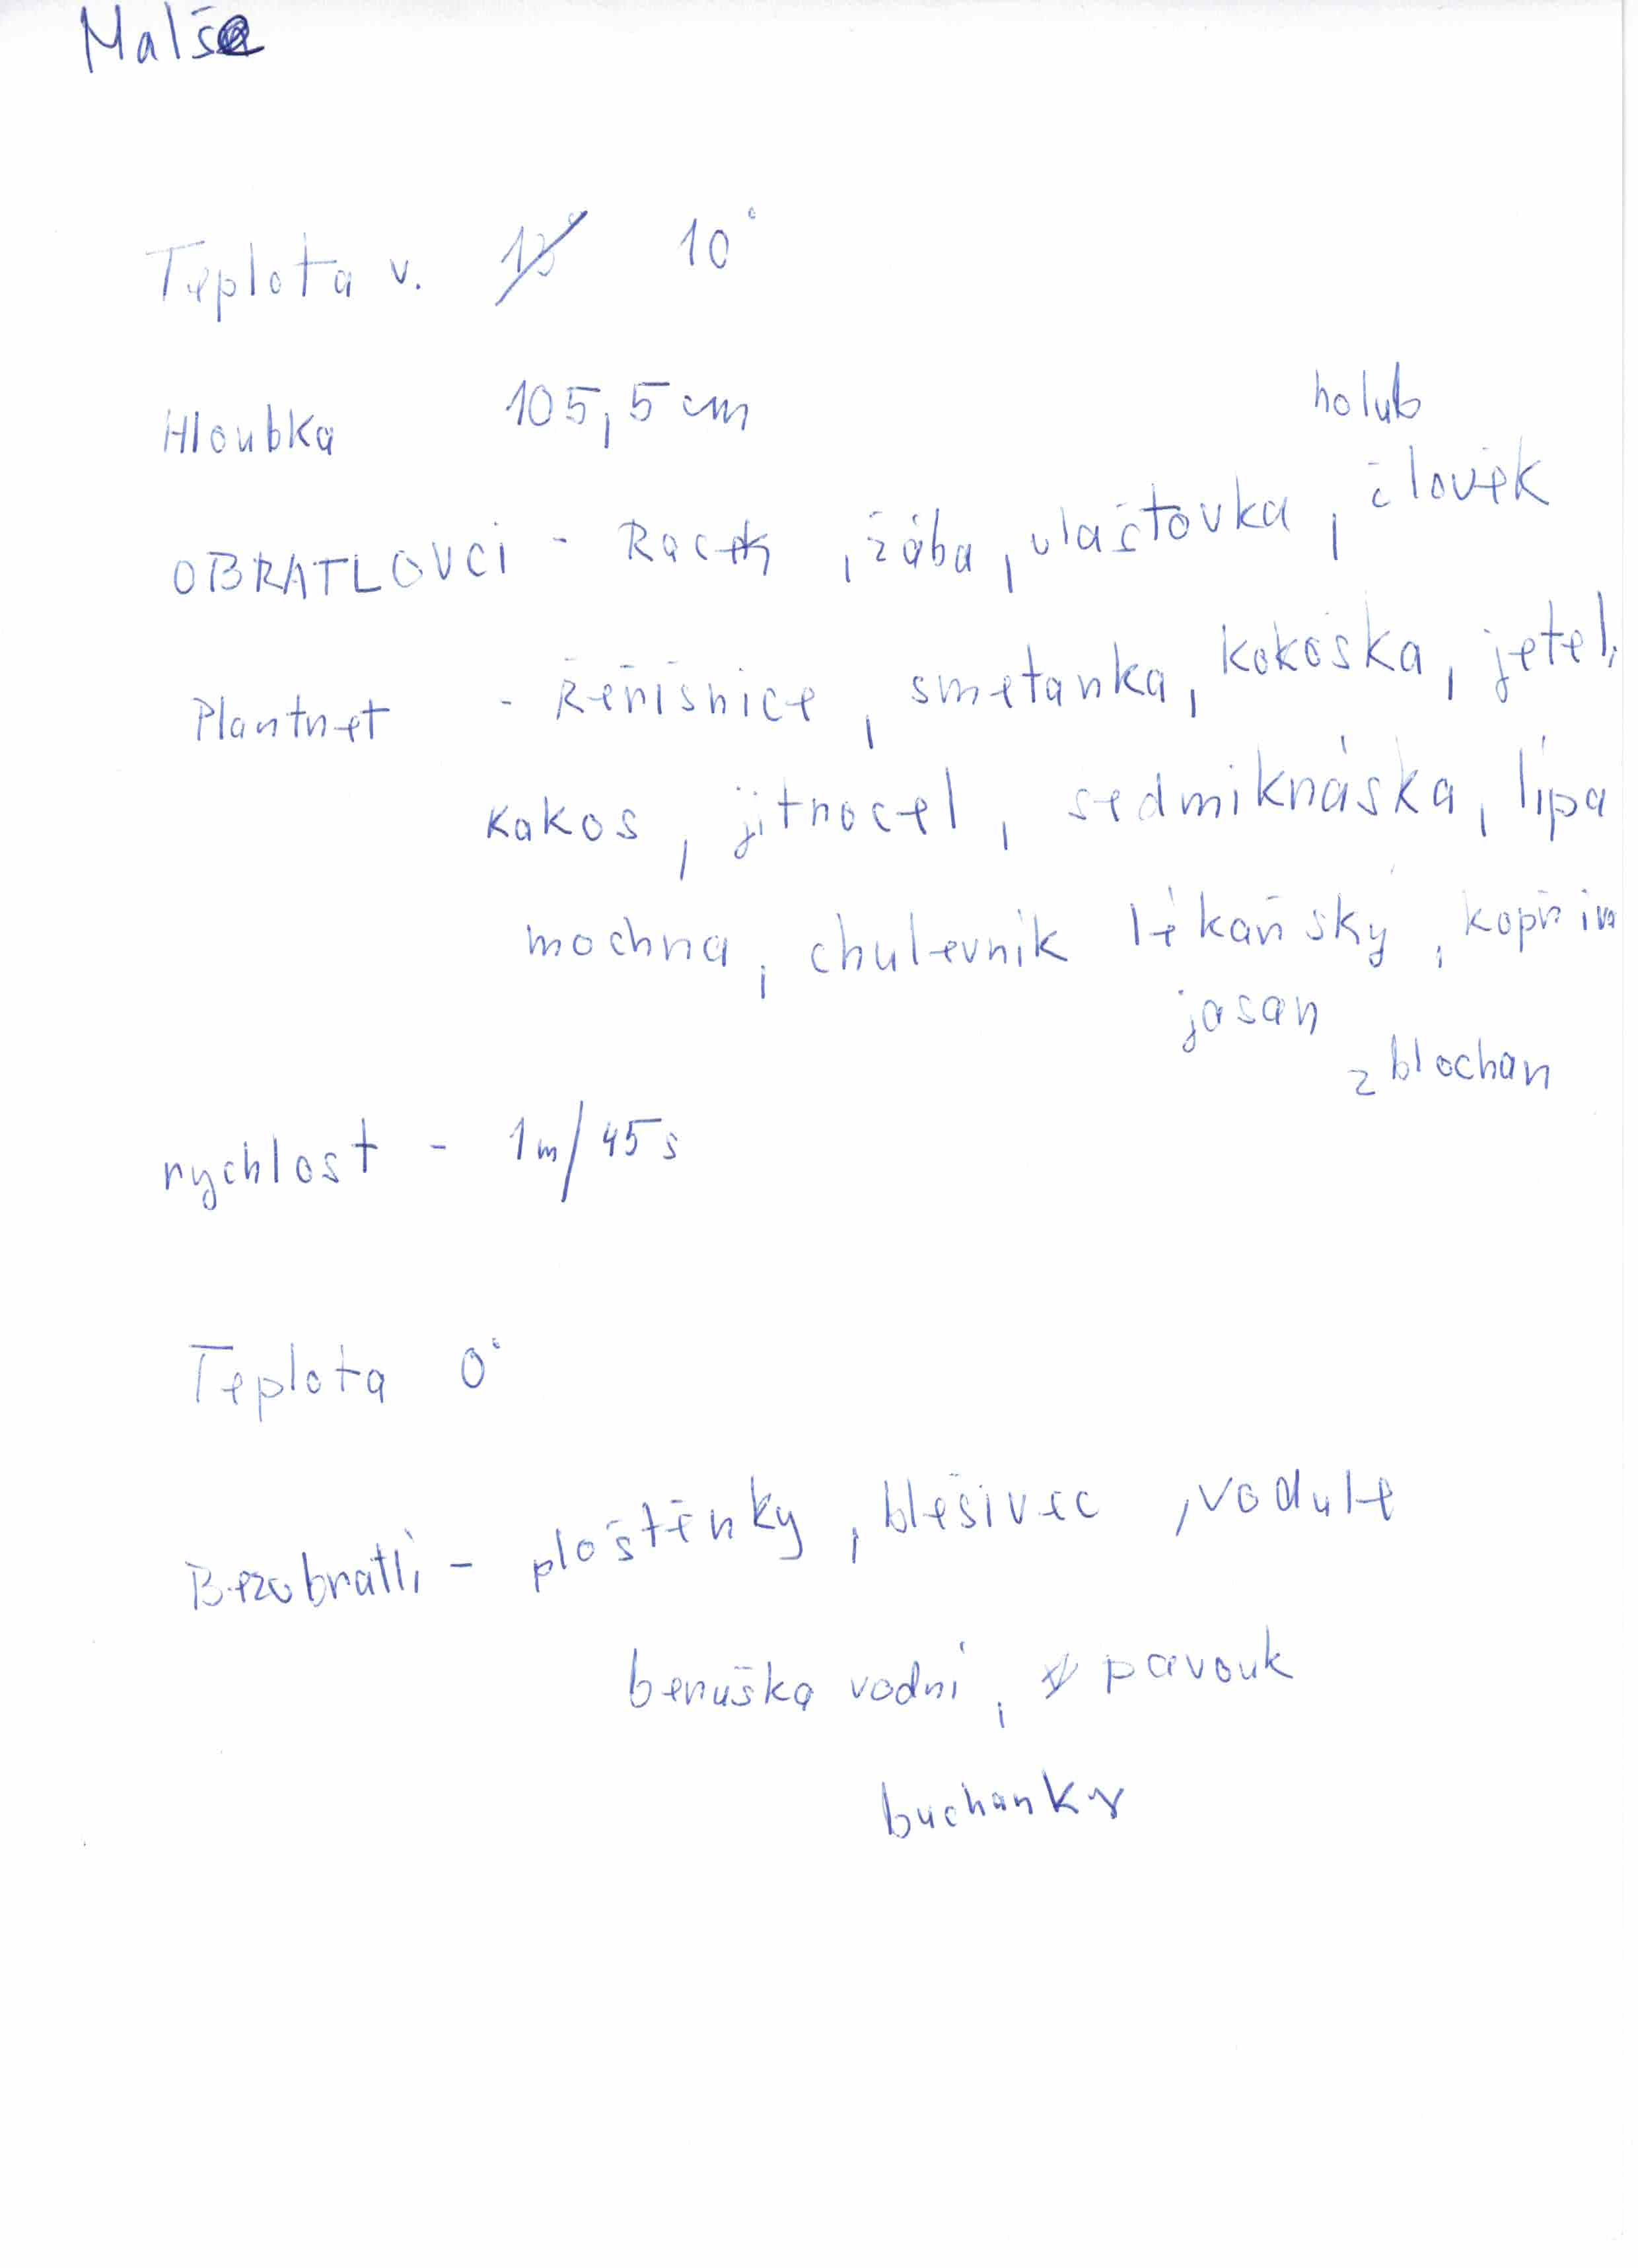 Malše
Teplota v. 10°
Hloubka 105,5 cm
holub
OBRATLOVCI - Racek, žába, vlaštovka, člověk
Plantnet - Řeřišnice, smetanka, kokoška, jetel,
kakos, jitrocel, sedmikráska, lípa
mochna, chulevník lékařský, kopřiv
jasan
zblochan
rychlost - 1m/45s
Teplota 0°
Bezobratlí - ploštěnky, blešivec, vodule
beruška vodní, pavouk
buchanky